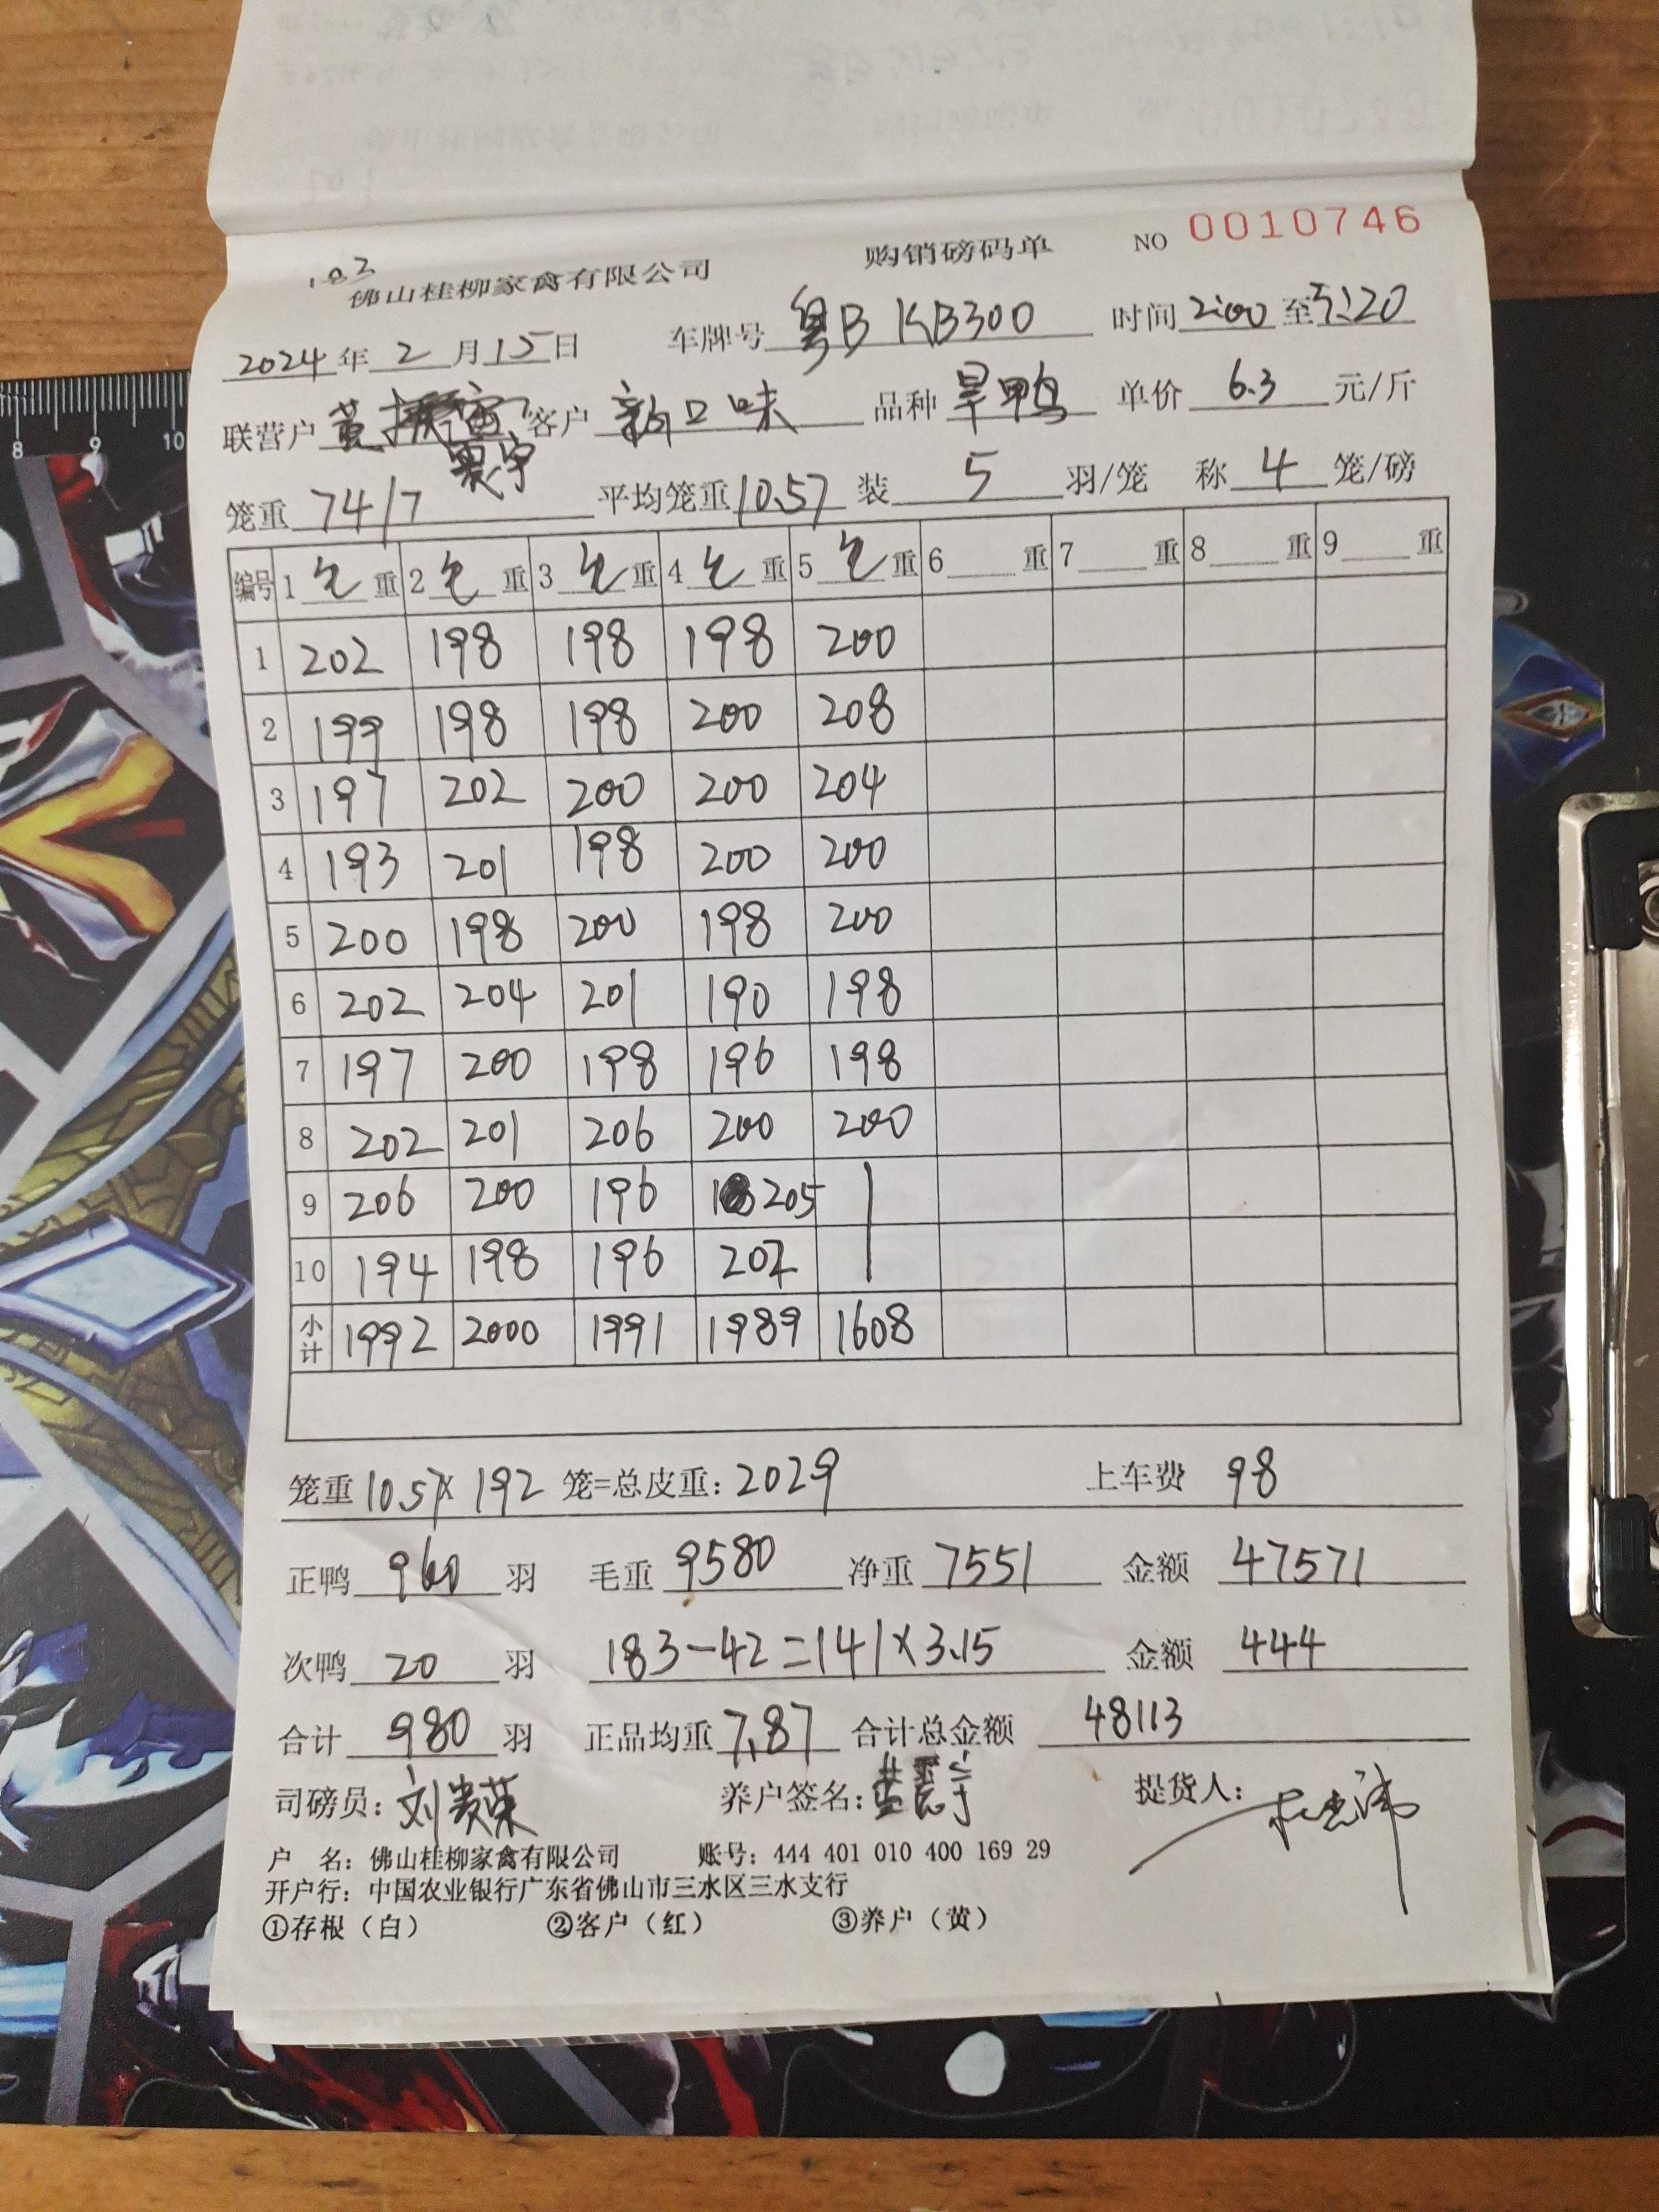 购销磅码单 NO 0010746
佛山桂柳家禽有限公司
2024年2月15日 车牌号 粤B KB300 时间 2:00 至 5:20
联营户 黄 客户 新口味 品种 旱鸭 单价 6.3 元/斤
笼重 74/7 平均笼重 10.57 装 5 羽/笼 称 4 笼/磅
编号 1 毛 重 2 毛 重 3 毛 重 4 毛 重 5 毛 重 6 重 7 重 8 重 9 重
1 202 198 198 198 200
2 199 198 198 200 208
3 197 202 200 200 204
4 193 201 198 200 200
5 200 198 200 198 200
6 202 204 201 190 198
7 197 200 198 196 198
8 202 201 206 200 200
9 206 200 196 205
10 194 198 196 202
小计 1992 2000 1991 1989 1608
笼重 10.57 x 192 笼=总皮重: 2029 上车费 98
正鸭 960 羽 毛重 9580 净重 7551 金额 47571
次鸭 20 羽 183-42=141×3.15 金额 444
合计 980 羽 正品均重 7.87 合计总金额 48113
司磅员: 刘贵荣 养户签名: 提货人:
户 名: 佛山桂柳家禽有限公司 账号: 444 401 010 400 169 29
开户行: 中国农业银行广东省佛山市三水区三水支行
①存根（白） ②客户（红） ③养户（黄）
8 9 10